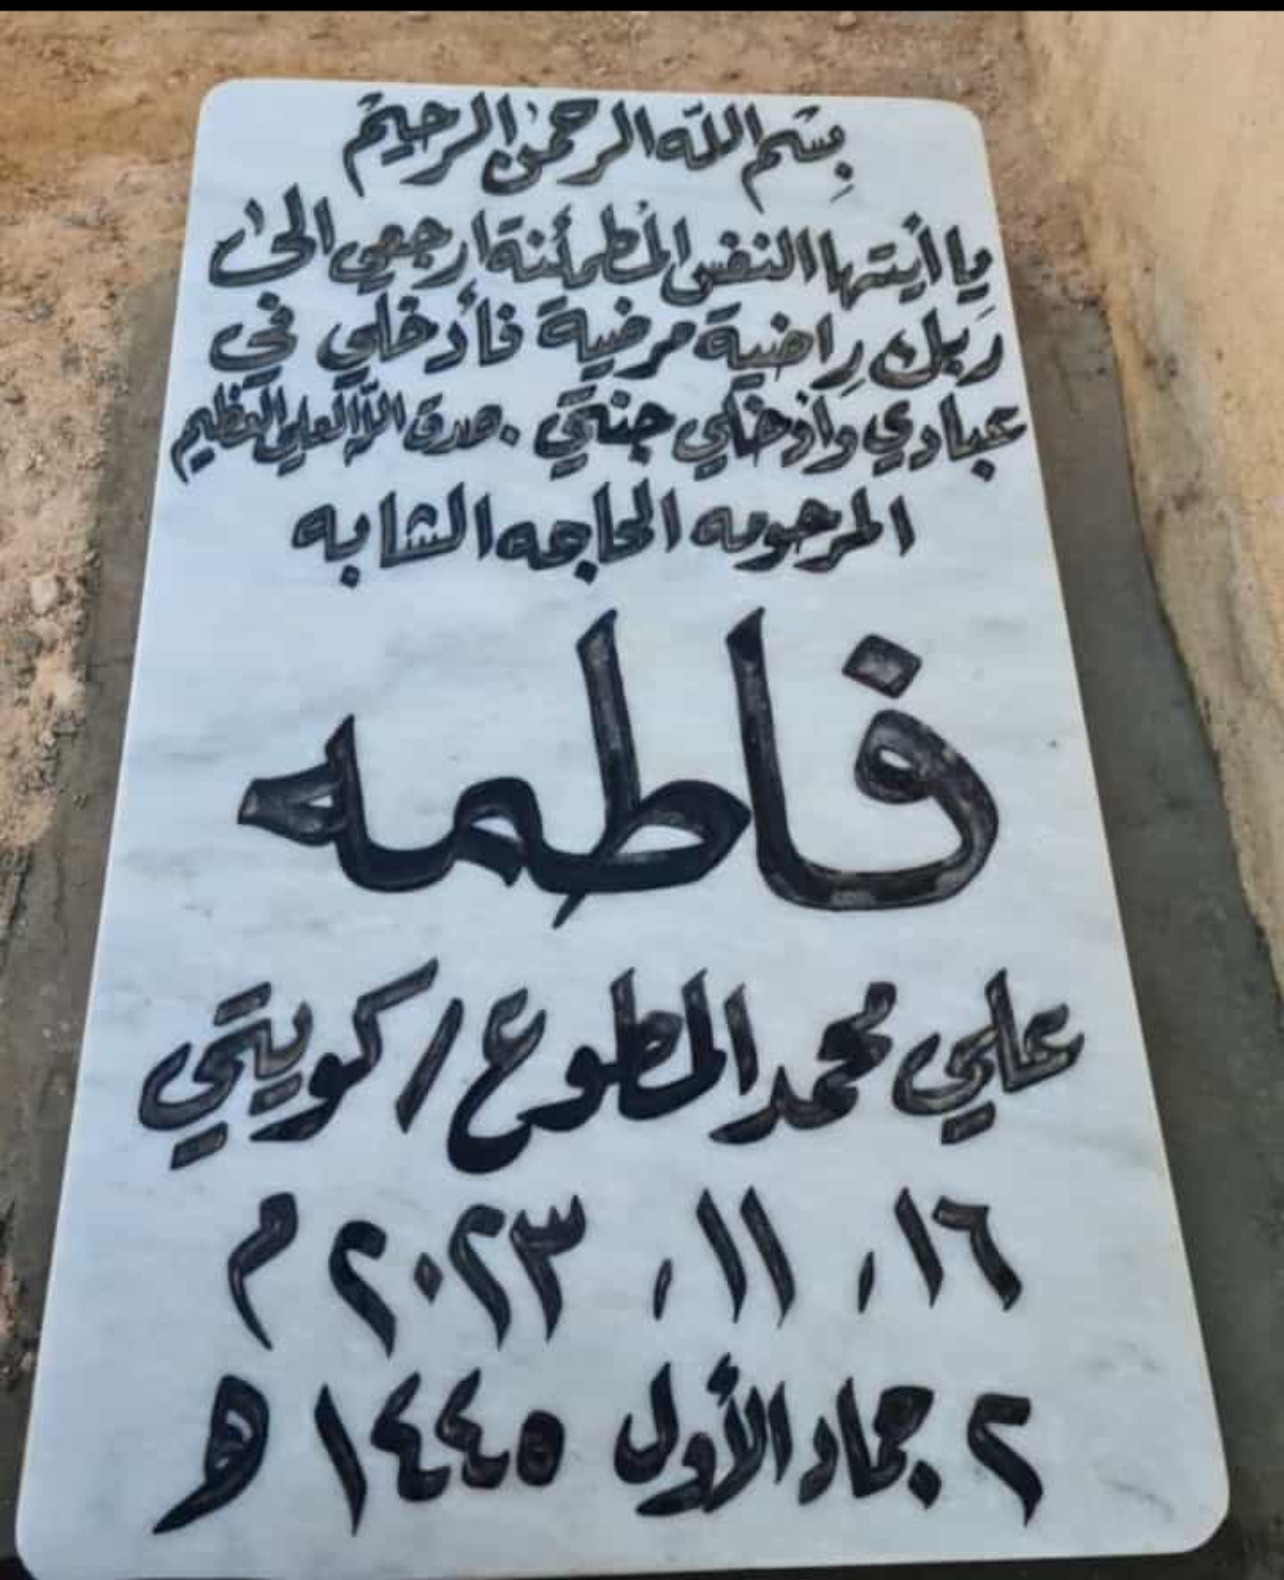 بِسْم اللّه الرحمٰن الرحيْم
يا أيتها النفس المُطمئنة ارجعي الىٰ
رَبك رِاضية مرضية فأدخلي في
عبادي وأدخلي جنتي . صدق اللّه العلي العظيم
المرحومه الحاجه الشابه
فاطمه
علي محمد المطوع / كويتي
١٦ , ١١ , ٢٠٢٣ م
٢ جماد الأول ١٤٤٥ ه